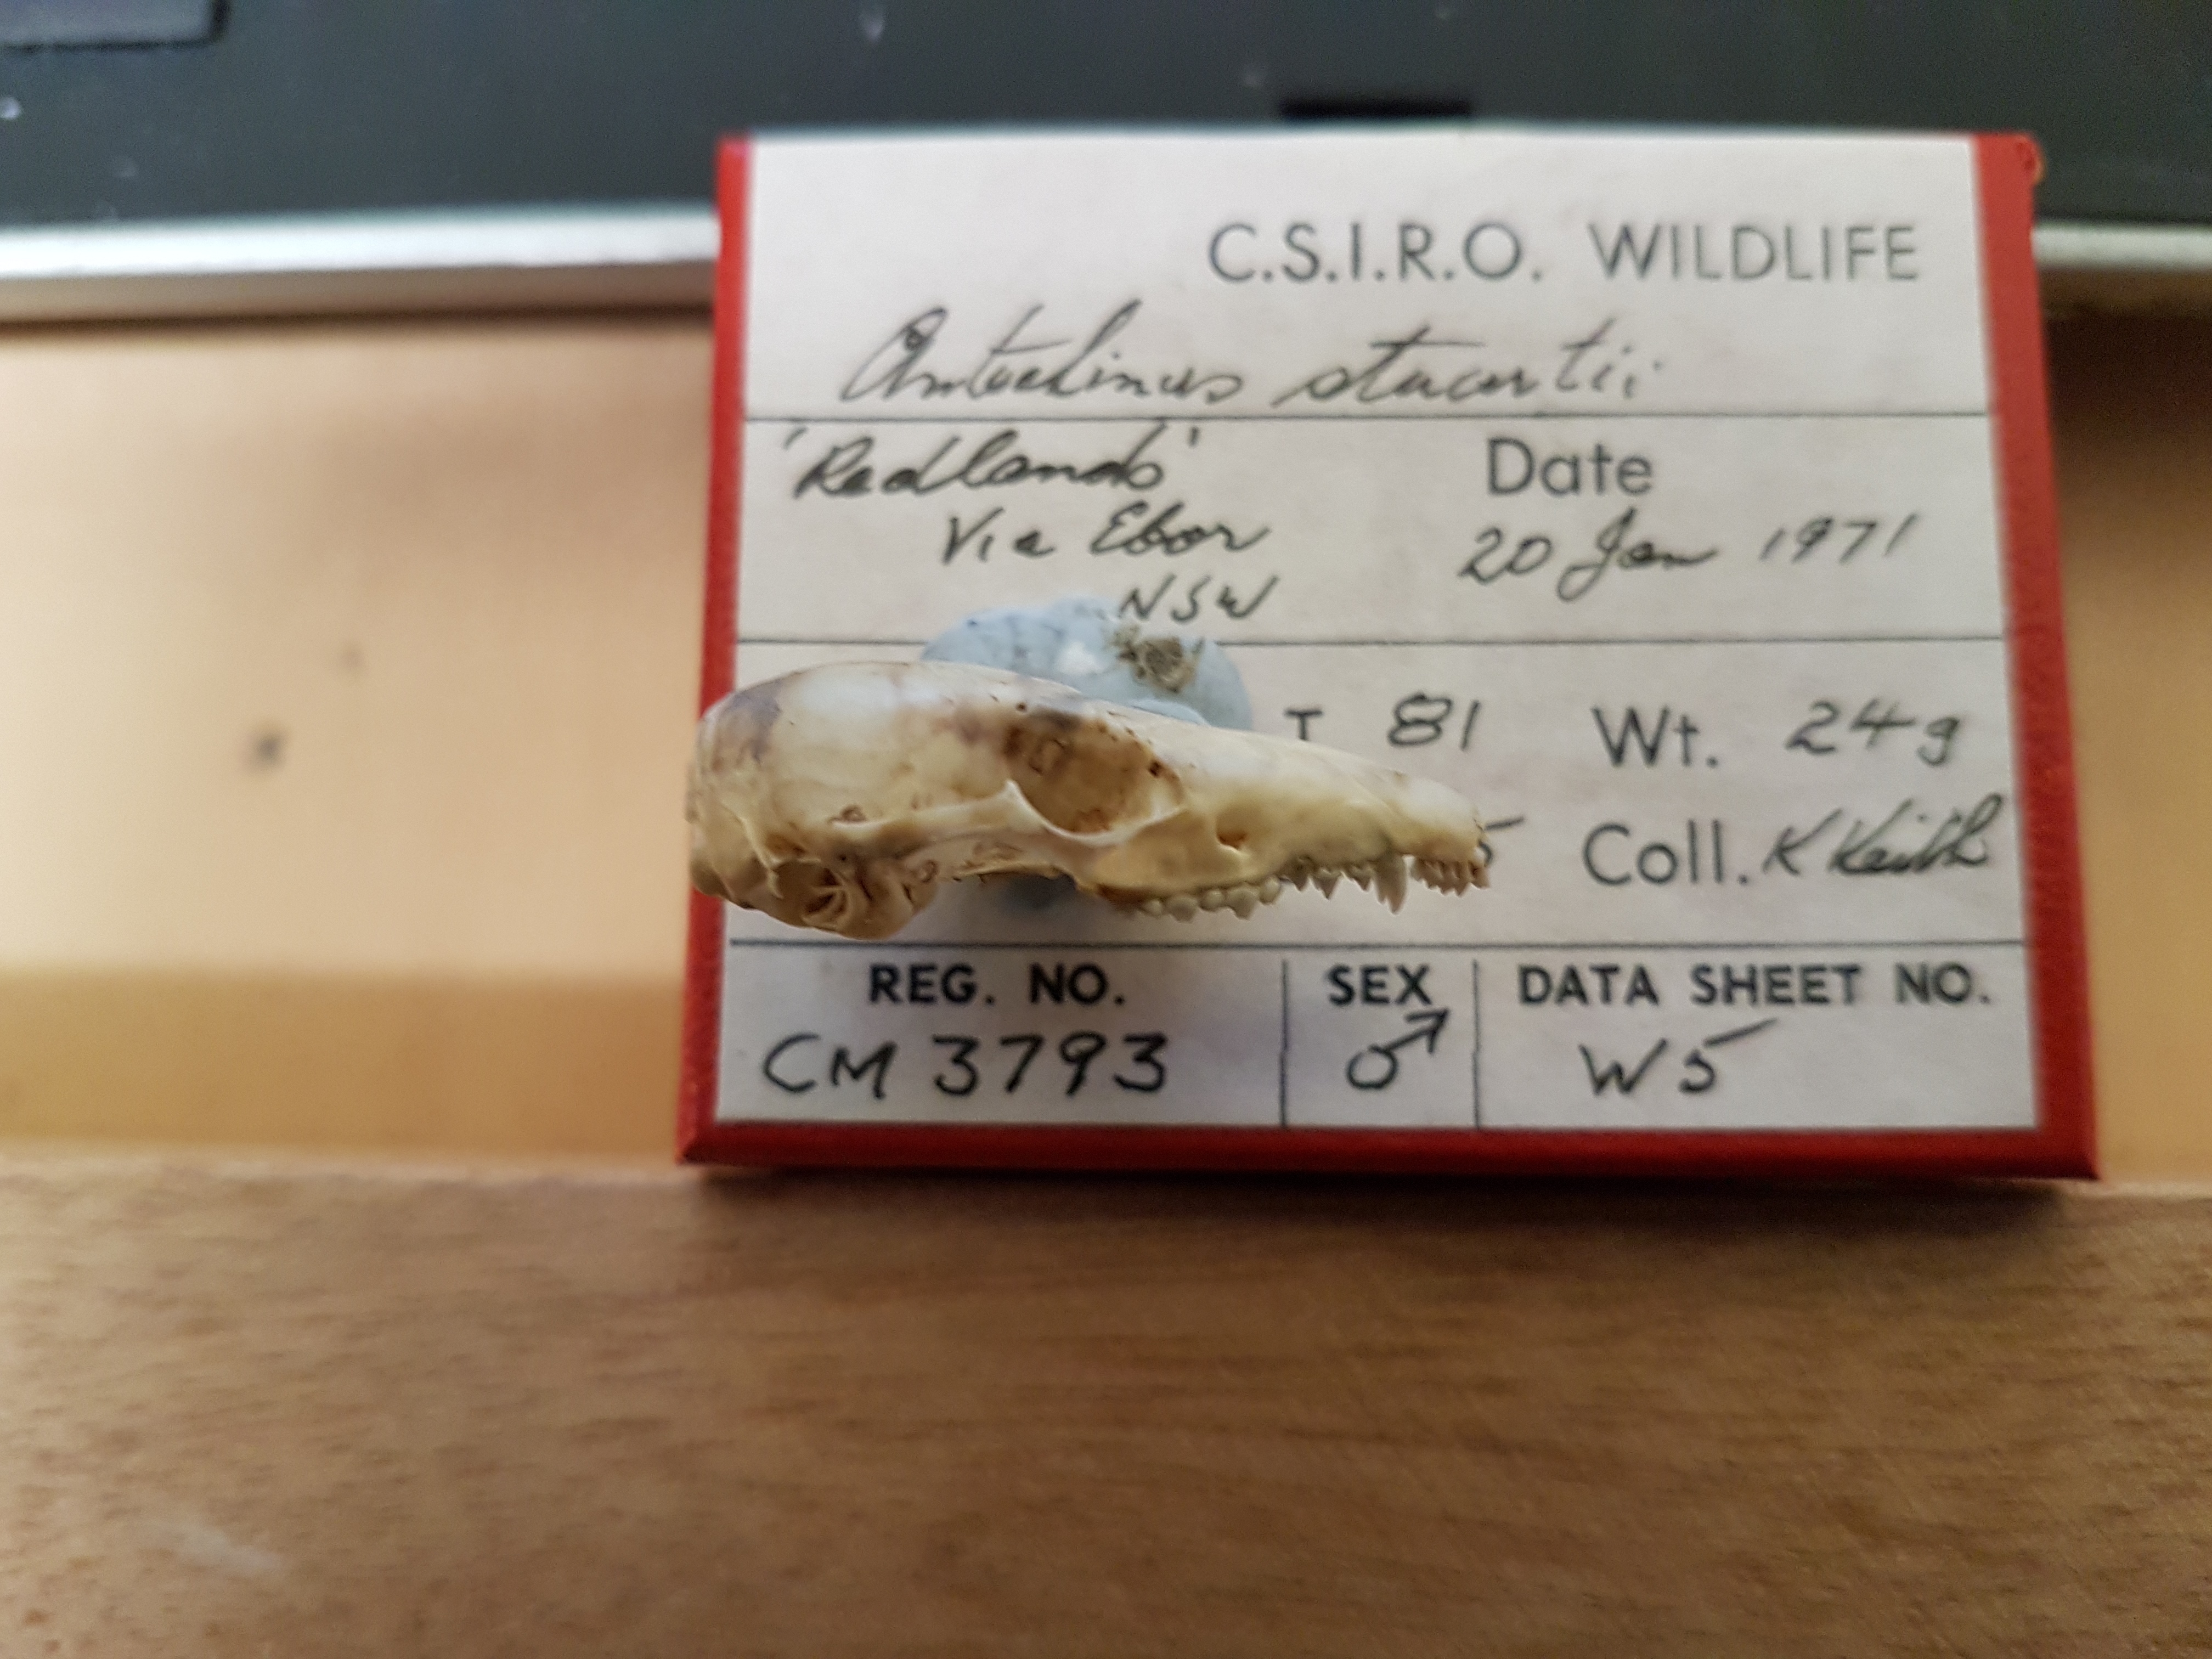 C.S.I.R.O. WILDLIFE
Antechinus stuartii
Date
Via Ebor
20 Jan 1971
NSW
T 81 Wt. 24g
5 Coll. K Keith
REG. NO. SEX DATA SHEET NO.
CM 3793 ♂ W5